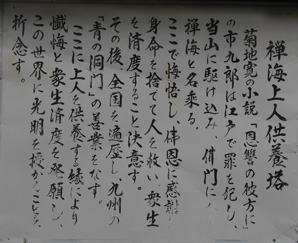 禅海上人供養塔
菊池寛の小説「恩讐の彼方に」
の市九郎は江戸で罪を犯し、
当山に駆け込み、佛門に入
禅海と名乗る。
ここで悔悟し、佛恩に感謝
身命を捨てて人を救い衆生
を済度することを決意す。
その後、全国を遍歴し、九州の
「青の洞門」の善業をなす。
ここに上人を供養する縁により
懺悔と衆生済度を発願し、
この世界に光明を授かることを
祈念す。